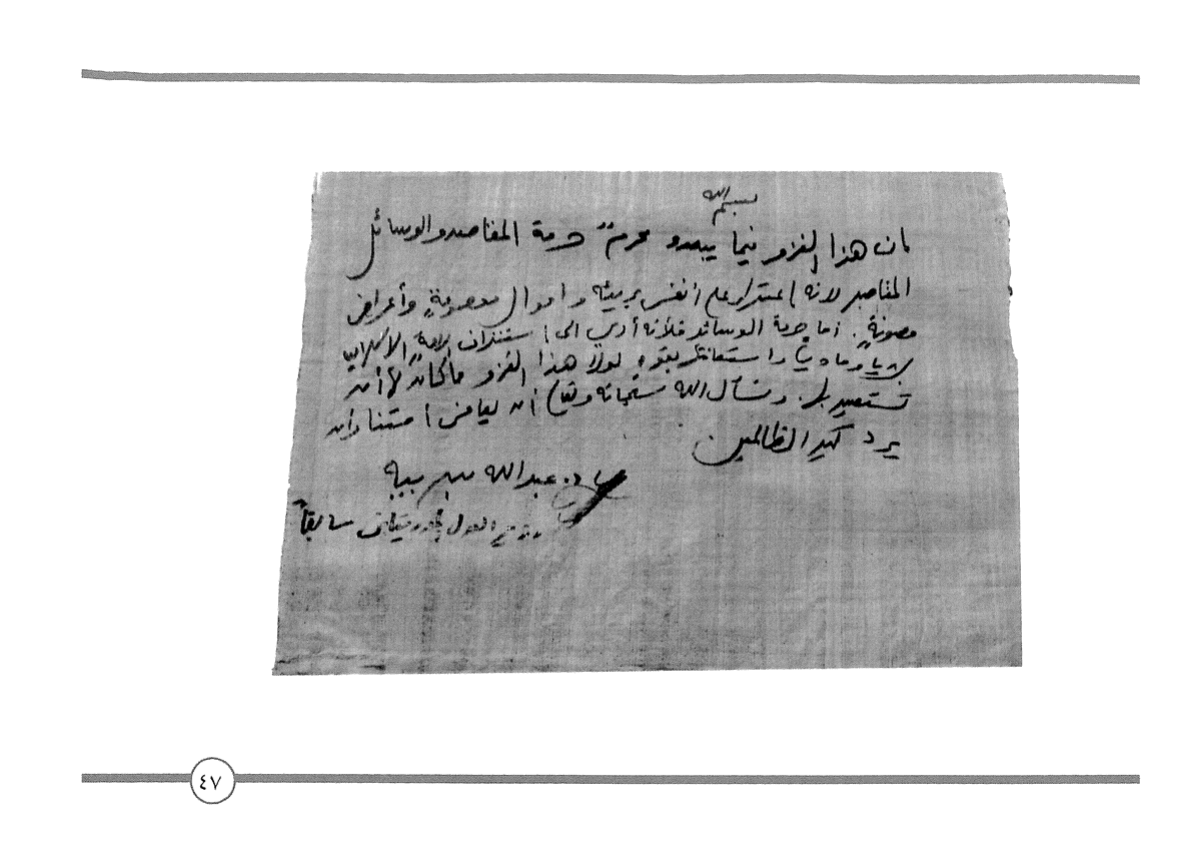 بسم الله
إن هذا الغزو فيما يبدو محرمٌ حرمة المقاصد والوسائل
المقاصد لأنه اعتداء على أنفس بريئة وأموال معصومةٍ وأعراض
مصونةٍ. أما حرمة الوسائل فلأنه أدى إلى استنزاف الأمة الإسلامية
بشريا وماديا واستعانة بقوة لولا هذا الغزو ما كان لأحد أن
يستعين بها. ونسأل الله سبحانه وتعالى أن
يرد كيد الظالمين
د. عبد الله بن بيه
وزير العدل سابقاً
٤٧